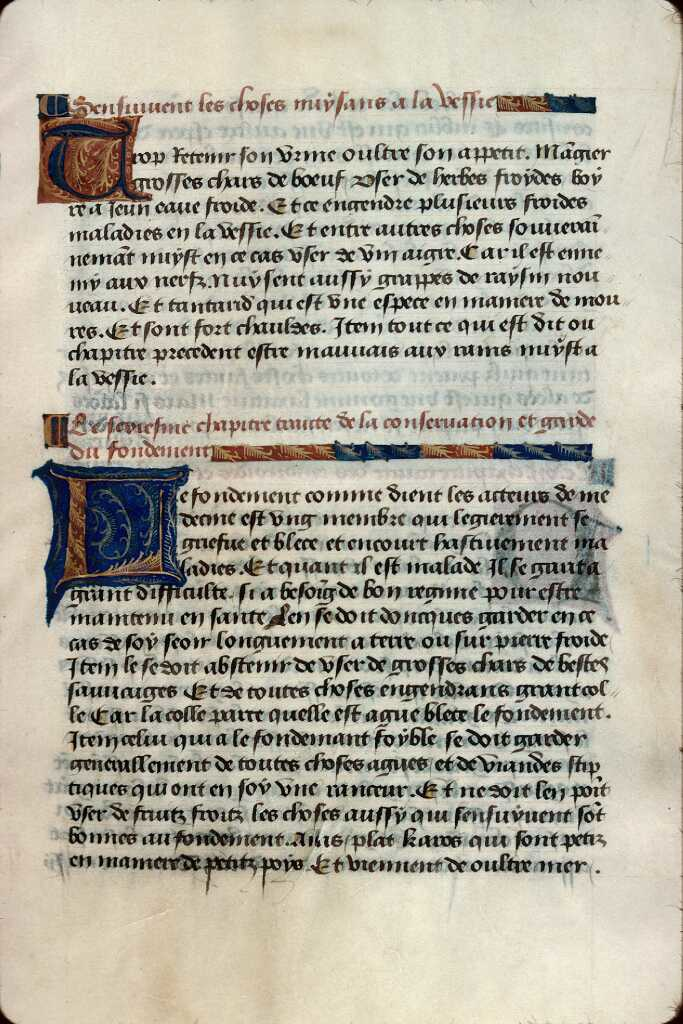 Sensuivent les choses nuysans a la vessie
Trop Retenir son vrine oultre son appetit. Mãgier
grosses chars de boeuf vser de herbes froydes boy
re a Jeun eaue froide. Et ce engendre plusieurs froides
maladies en la vessie. Et entre autres choses souuerai
nemãt nuyst en ce cas vser de vin aigre. Car il est enne
my aux nerfz. Nuysent aussy grappes de raysin nou
ueau. Et tantarid qui est vne espece en maniere de mou
res. Et sont fort chauldes. Item tout ce qui est dit ou
chapitre precedent estre mauuais aux rains nuyst a
la vessie.
Le seziesme chapitre traicte de la conseruation et garde
du fondement
Le fondement comme dient les acteurs de me
decine est vng membre qui legierement se
griefue et blece et encourt hastiuement ma
ladies. Et quant il est malade Il se garit a
grant difficulte. si a besoing de bon regime pour estre
maintenu en sante Len se doit doncques garder en ce
cas de soy seoir longuement a terre ou sur pierre froide
Item le se doit abstenir de vser de grosses chars de bestes
sauuaiges Et de toutes choses engendrans grant col
le Car la colle parce quelle est ague blece le fondement.
Item celui qui a le fondemant foyble se doit garder
generallement de toutes choses agues et de viandes stip
tiques qui ont en soy vne ranceur. Et ne doit len poit
vser de fruitz froitz les choses aussy qui sensuyuent sõt
bonnes au fondement. Mais plat karos qui sont petiz
en maniere de petitz poys Et viennent de oultre mer.